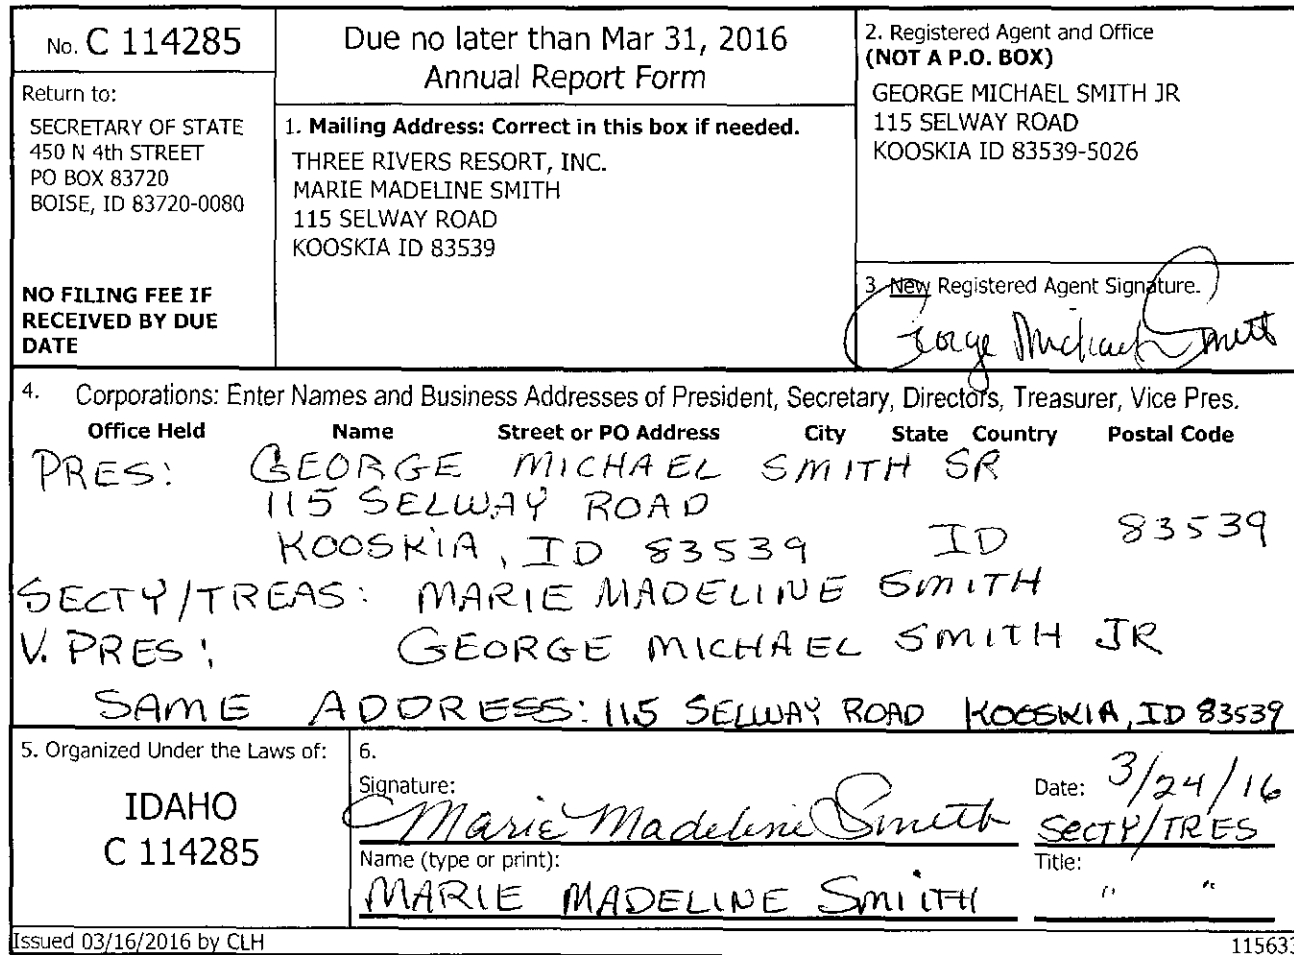 No. C 114285
Return to:
SECRETARY OF STATE
450 N 4th STREET
PO BOX 83720
BOISE, ID 83720-0080
NO FILING FEE IF
RECEIVED BY DUE
DATE
Due no later than Mar 31, 2016
Annual Report Form
1. Mailing Address: Correct in this box if needed.
THREE RIVERS RESORT, INC.
MARIE MADELINE SMITH
115 SELWAY ROAD
KOOSKIA ID 83539
2. Registered Agent and Office
(NOT A P.O. BOX)
GEORGE MICHAEL SMITH JR
115 SELWAY ROAD
KOOSKIA ID 83539-5026
3. New Registered Agent Signature.
George Michael Smith
4. Corporations: Enter Names and Business Addresses of President, Secretary, Directors, Treasurer, Vice Pres.
Office Held Name Street or PO Address City State Country Postal Code
PRES: GEORGE MICHAEL SMITH SR
115 SELWAY ROAD
KOOSKIA, ID 83539 ID 83539
SECTY/TREAS: MARIE MADELINE SMITH
V. PRES: GEORGE MICHAEL SMITH JR
SAME ADDRESS: 115 SELWAY ROAD KOOSKIA, ID 83539
5. Organized Under the Laws of:
IDAHO
C 114285
6.
Signature:
Marie Madeline Smith
Date: 3/24/16
SECTY/TRES
Name (type or print):
MARIE MADELINE SMIITH
Title:
" "
Issued 03/16/2016 by CLH
115633